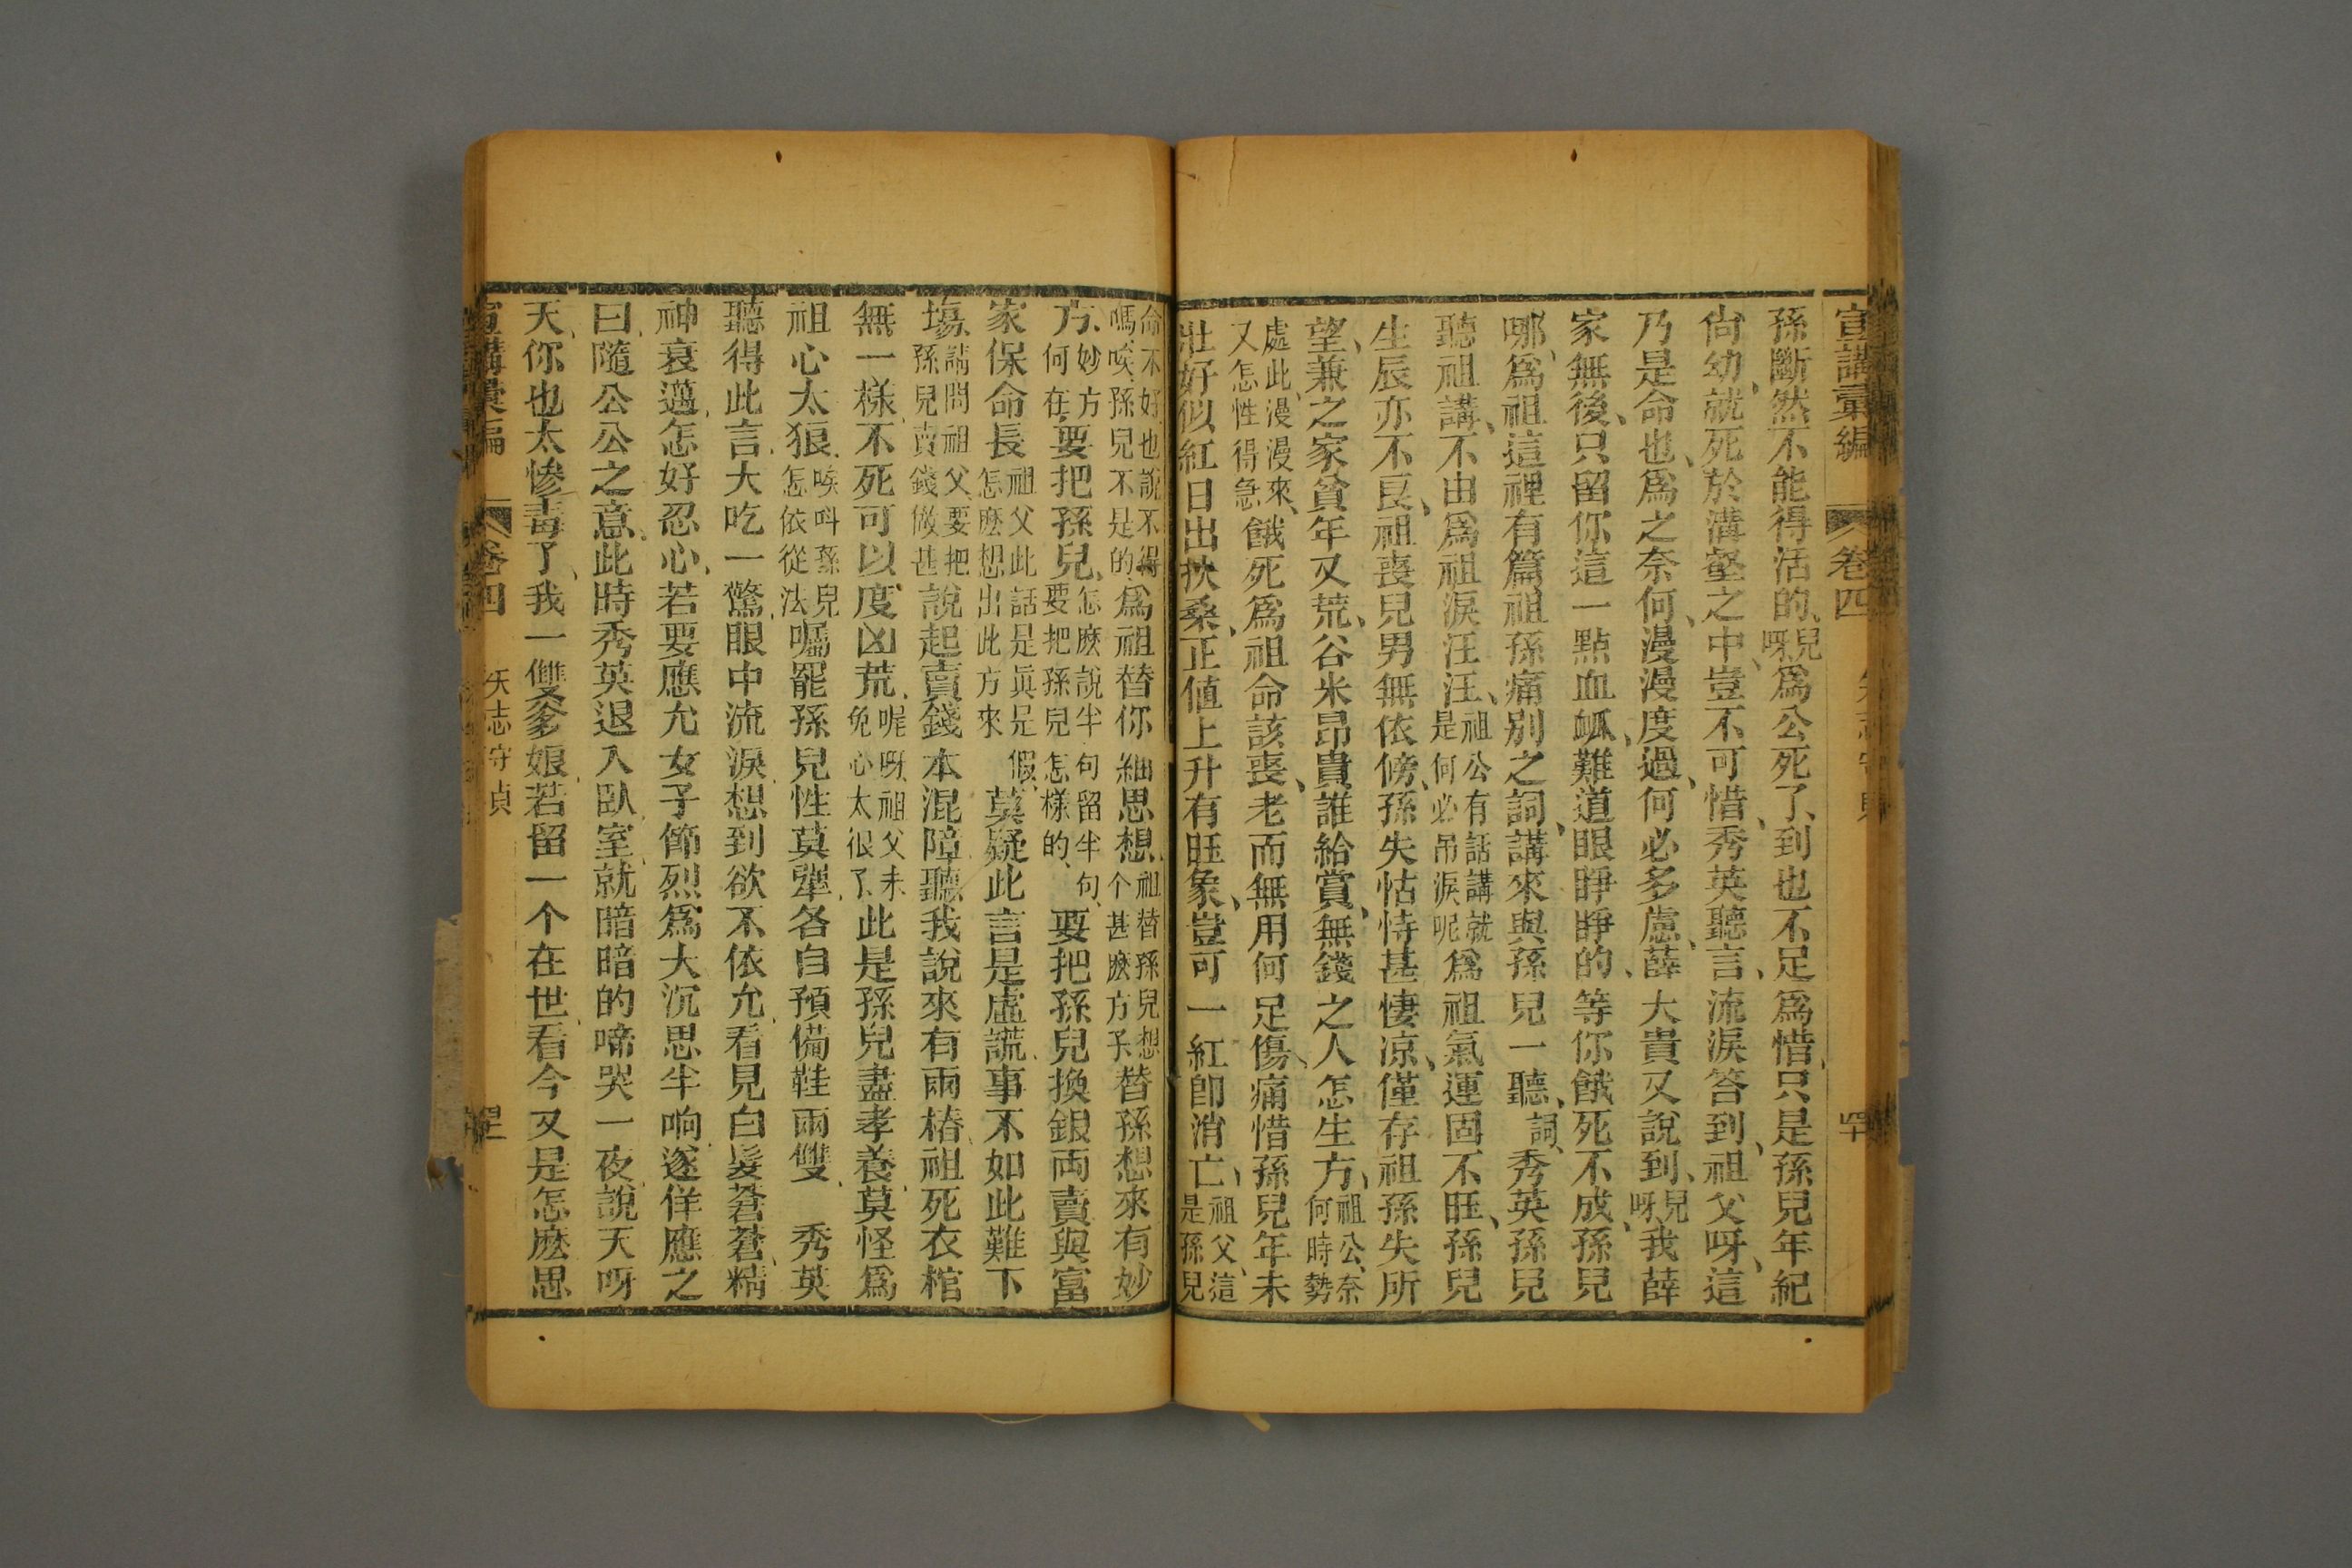 宣講彙編 卷四
孫斷然不能得活的、兒呀爲公死了、到也不足爲惜、只是孫兒年紀
尙幼、就死於溝壑之中、豈不可惜、秀英聽言、流淚答到、祖父呀、這
乃是命也、爲之奈何、漫漫度過、何必多慮、薛大貴又說到、兒呀我薛
家無後、只留你這一點血㼌、難道眼睜睜的、等你餓死不成、孫兒
哪、爲祖這裡有篇祖孫痛别之詞、講來與孫兒一聽、詞、秀英孫兒
聽祖講、不由爲祖淚汪汪、祖公有話講就是何必吊淚呢爲祖氣運固不旺、孫兒
生辰亦不良、祖喪兒男無依傍、孫失怙恃甚悽凉、僅存祖孫失所
望、兼之家貧年又荒、谷米昂貴誰給賞、無錢之人怎生方、祖公、奈何時勢
處此、漫漫來、又怎性得急餓死爲祖命該喪、老而無用何足傷、痛惜孫兒年未
壯、好似紅日出扶桑、正値上升有旺象、豈可一紅卽消亡、祖父、這是孫兒
命不好、也說不得嗎、唉、孫兒不是的、爲祖替你細思想、祖替孫兒想个甚麽方子、替孫想來有妙
方、妙方何在、要把孫兒、怎麽說半句留半句、要把孫兒怎樣的、要把孫兒換銀両賣與富
家保命長、祖父此話是眞是假、怎麽想出此方來莫疑此言是虛謊、事不如此難下
塲、請問祖父、要把孫兒賣錢做甚說起賣錢本混障、聽我說來有兩樁、祖死衣棺
無一樣、不死可以度凶荒、呢呀、祖父未免心太很了、此是孫兒盡孝養、莫怪爲
祖心太狠、唉呌孫兒怎依從法囑罷孫兒性莫犟、各自預備鞋兩雙、秀英
聽得此言、大吃一驚、眼中流淚、想到欲不依允、看見白髮蒼蒼、精
神衰邁、怎好忍心、若要應允、女子節烈爲大、沉思半响、遂佯應之
曰、隨公公之意、此時秀英退入臥室、就暗暗的啼哭一夜、說天呀
天、你也太慘毒了、我一雙爹娘、若留一个在世、看今又是怎麽思
宣講彙編 卷四 矢志守貞